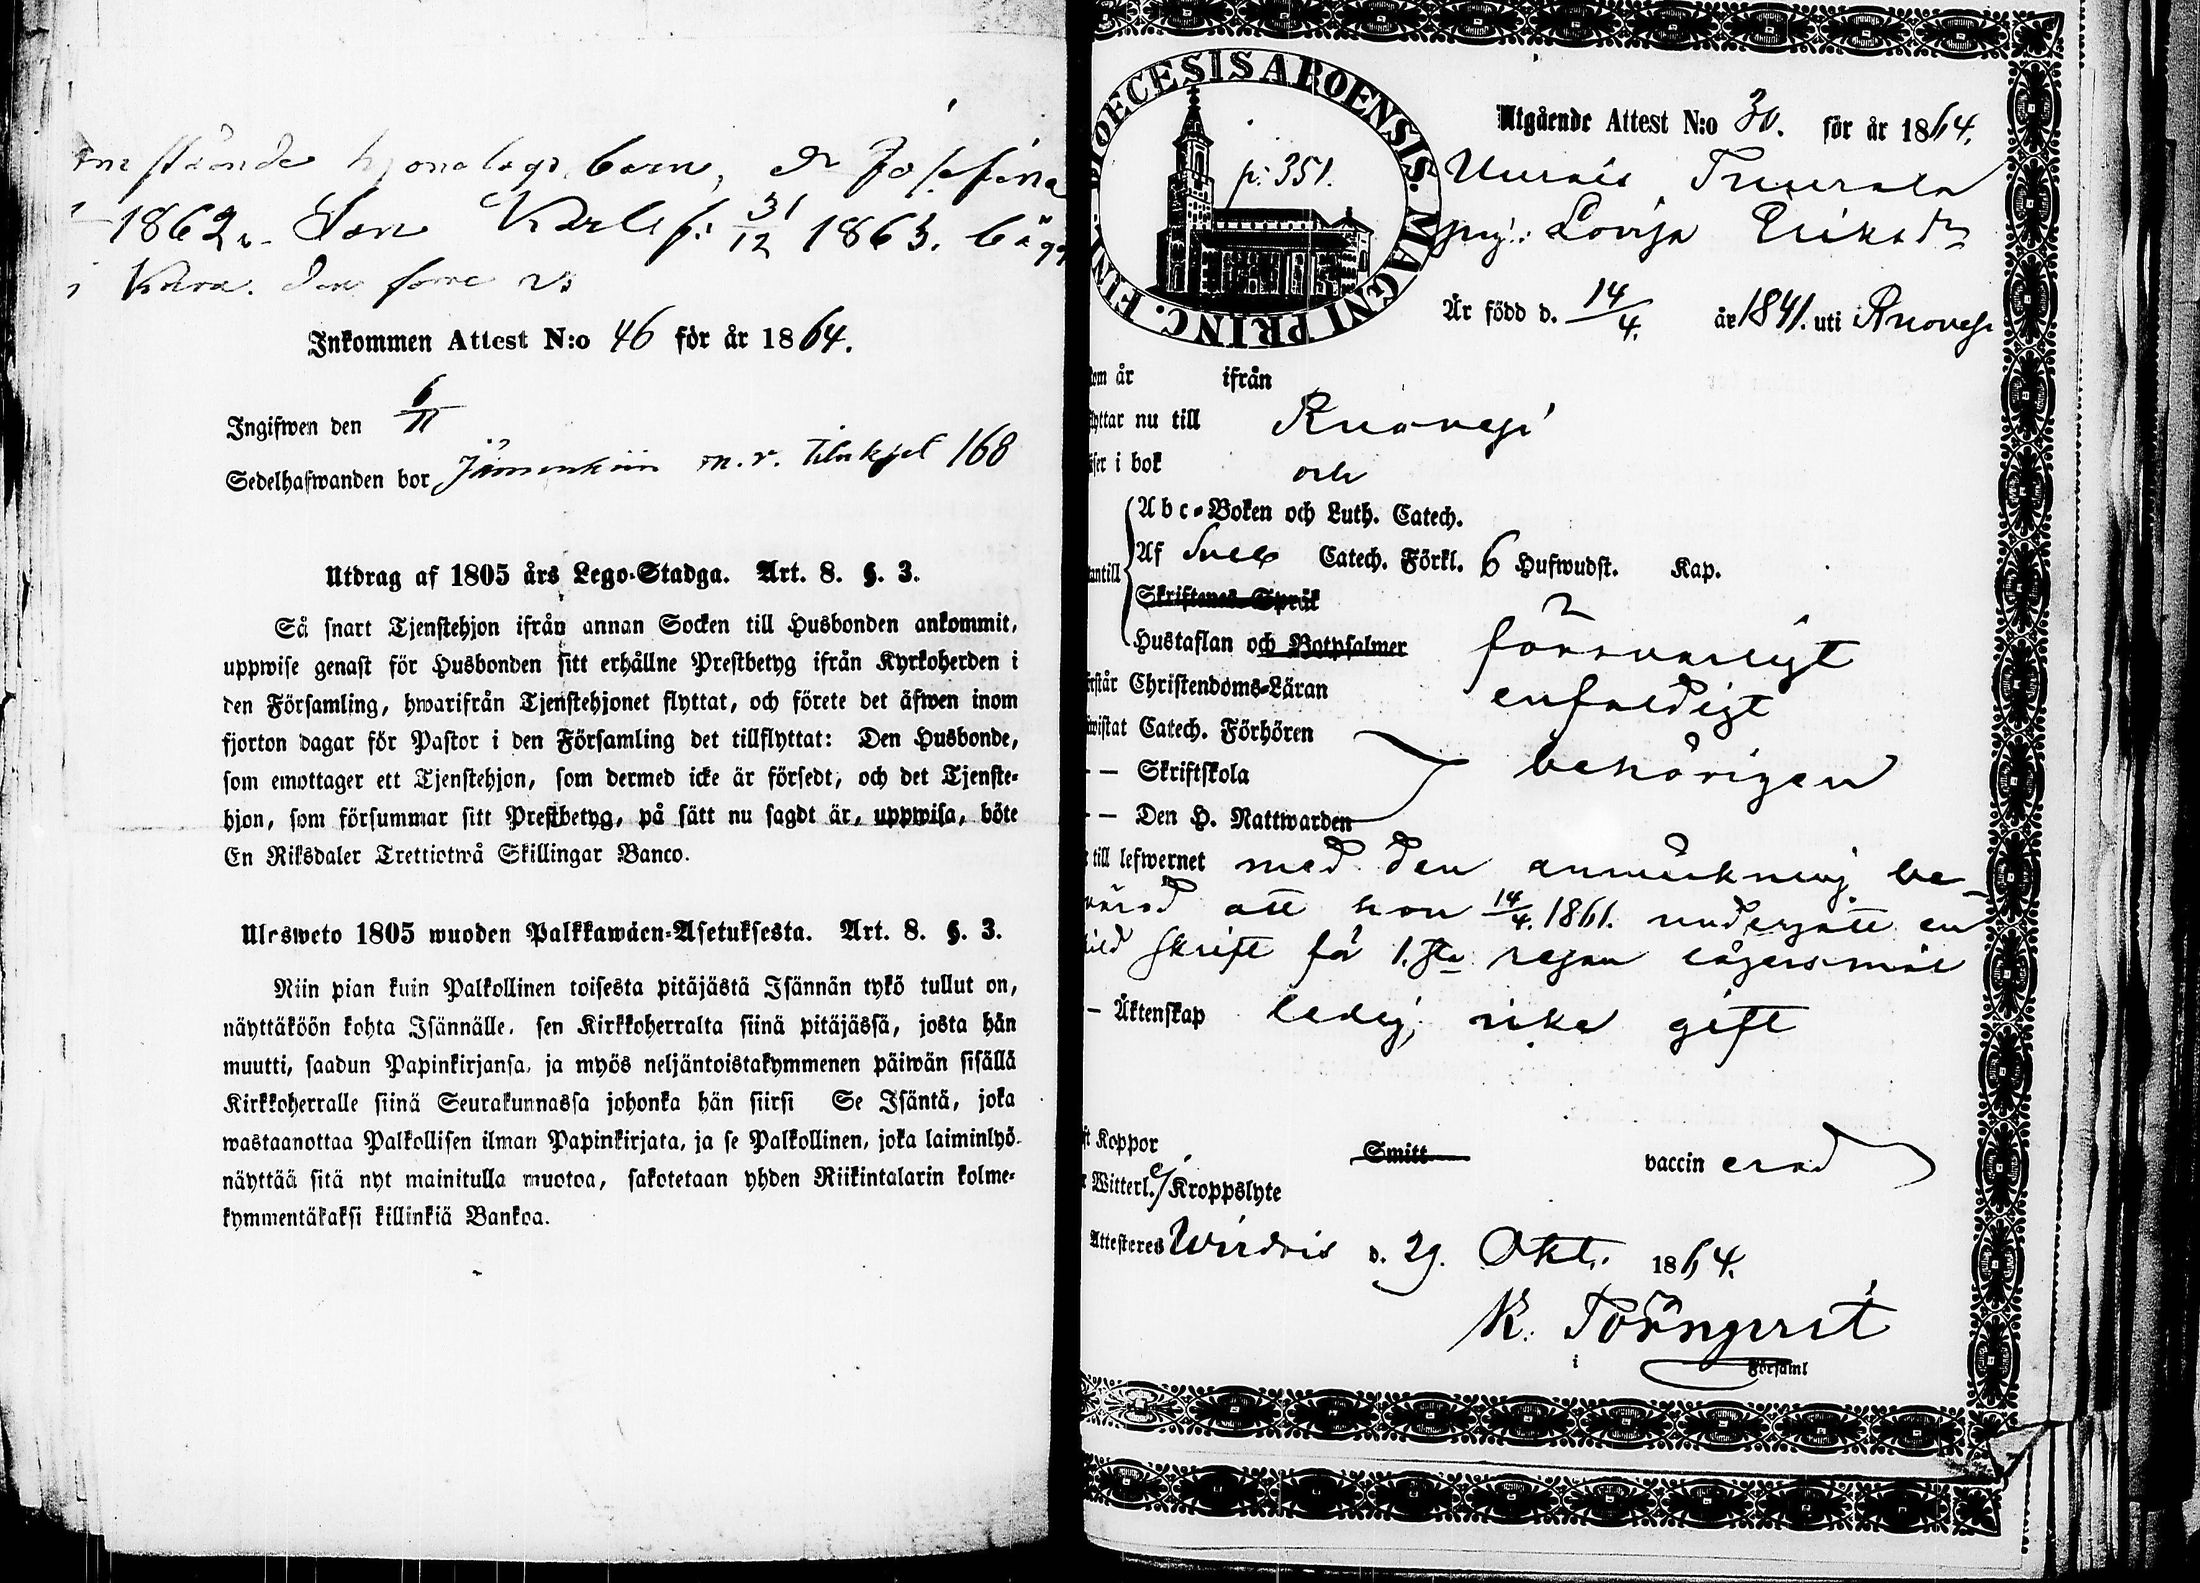 stående hjonelags barn, dr Josefina
1862. Son Karl f. 31/12 1863. bägge
i Kura. den förre
Inkommen Attest N:o 46 för år 1864.
Ingifwen den 6/11
Sedelhafwanden bor m. r. 168
Utdrag af 1805 års Lego-Stadga. Art. 8. §. 3.
Så snart Tjenstehjon ifrån annan Socken till Husbonden ankommit,
uppwise genast för Husbonden sitt erhållne Prestbetyg ifrån Kyrkoherden i
den Församling, hwarifrån Tjenstehjonet flyttat, och förete det äfwen inom
fjorton dagar för Pastor i den Församling det tillflyttat: Den Husbonde,
som emottager ett Tjenstehjon, som dermed icke är försedt, och det Tjenste-
hjon, som försummar sitt Prestbetyg, på sätt nu sagdt är, uppwisa, böte
En Riksdaler Trettiotwå Skillingar Banco.
Ulosweto 1805 wuoden Palkkawäen-Asetuksesta. Art. 8. §. 3.
Niin pian kuin Palkollinen toisesta pitäjästä Isännän tykö tullut on,
näyttäköön kohta Isännälle, sen Kirkkoherralta siinä pitäjässä, josta hän
muutti, saadun Papinkirjansa, ja myös neljäntoistakymmenen päiwän sisällä
Kirkkoherralle siinä Seurakunnassa johonka hän siirsi Se Isäntä, joka
wastaanottaa Palkollisen ilman Papinkirjata, ja se Palkollinen, joka laiminlyö
näyttää sitä nyt mainitulla muotoa, sakotetaan yhden Riikintalarin kolme-
kymmentäkaksi killinkiä Bankoa.
DIOECESIS ABOENSIS. MAGNI PRINC. FINL.
p: 351.
Utgående Attest N:o 30. för år 1864.
pig: Lovisa Eriksdr
Är född d. 14/4. år 1841. uti Ruovesi
om år ifrån
lyttar nu till Ruovesi
äser i bok och
Abc-Boken och Luth. Catech.
Af Sveb Catech. Förkl. 6 Hufwudst. Kap.
antill
Skriftenes Språk
Hustaflan och Botpsalmer försvarligt
rstår Christendoms-Läran enfaldigt
wistat Catech. Förhören
— Skriftskola behörigen
— Den H. Nattwarden
till lefwernet med den anmärkning be-
att hon 14/4. 1861. undergått en
skild skrift för 1.sta resan lägersmål
— Äktenskap ledig, icke gift
ft Koppor Smitt vaccin erad
Witterl. e/ Kroppslyte
Attesteres Wirdois d. 29. Okt. 1864.
K. Törnqvist
i Församl